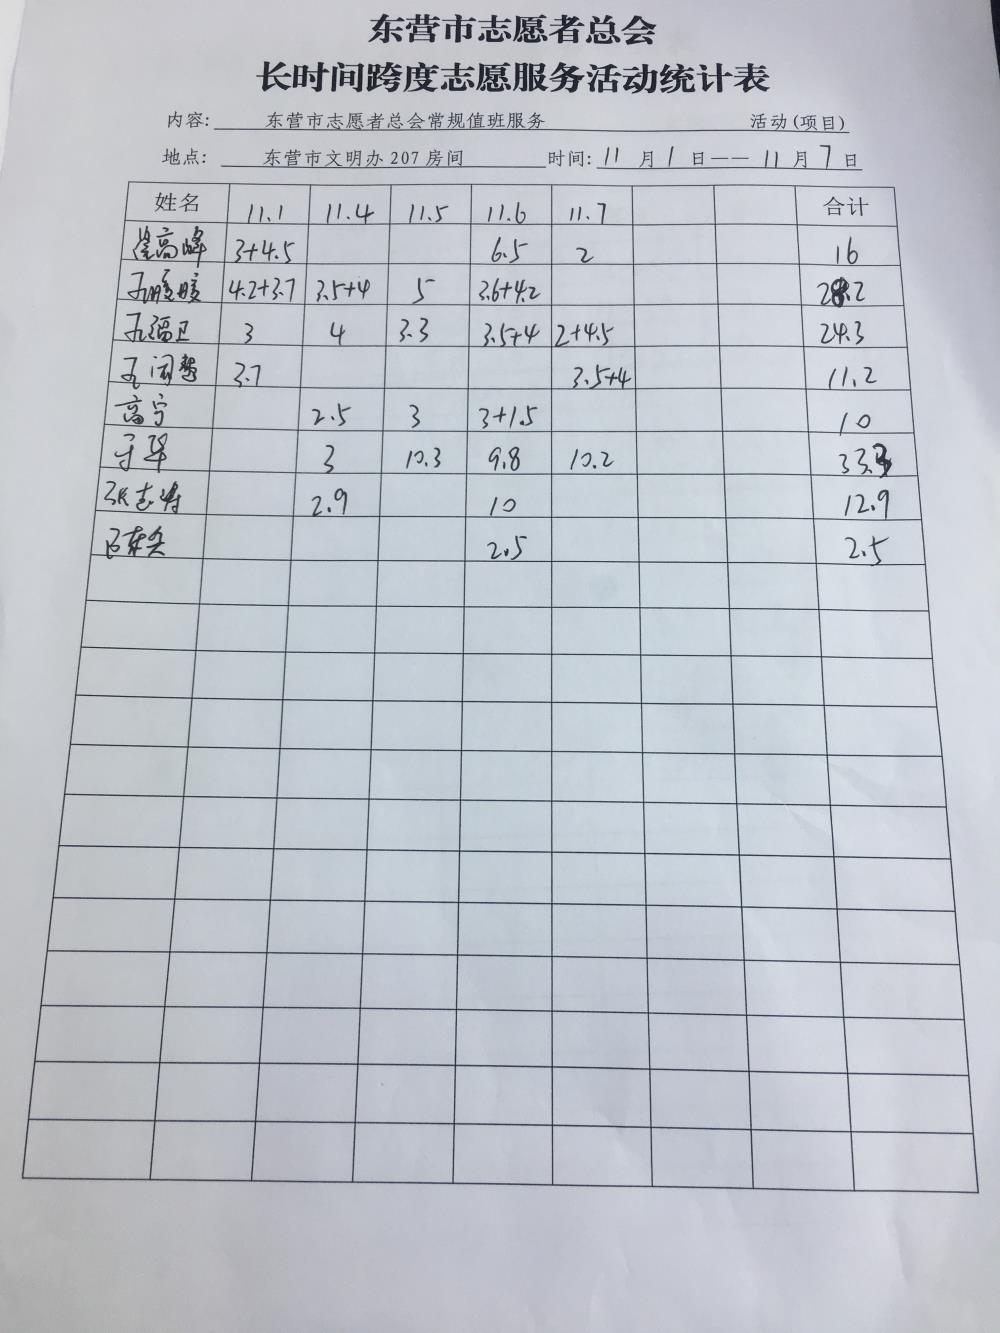 东营市志愿者总会
长时间跨度志愿服务活动统计表
内容: 东营市志愿者总会常规值班服务 活动(项目)
地点: 东营市文明办207房间 时间: 11月1日——11月7日
姓名 11.1 11.4 11.5 11.6 11.7 合计
高峰 3+4.5 6.5 2 16
4.2+3.7 3.5+4 5 3.6+4.2 28.2
3 4 3.3 3.5+4 2+4.5 24.3
3.7 3.5+4 11.2
高宁 2.5 3 3+1.5 10
于华 3 10.3 9.8 10.2 33.3
张志涛 2.9 10 12.9
2.5 2.5